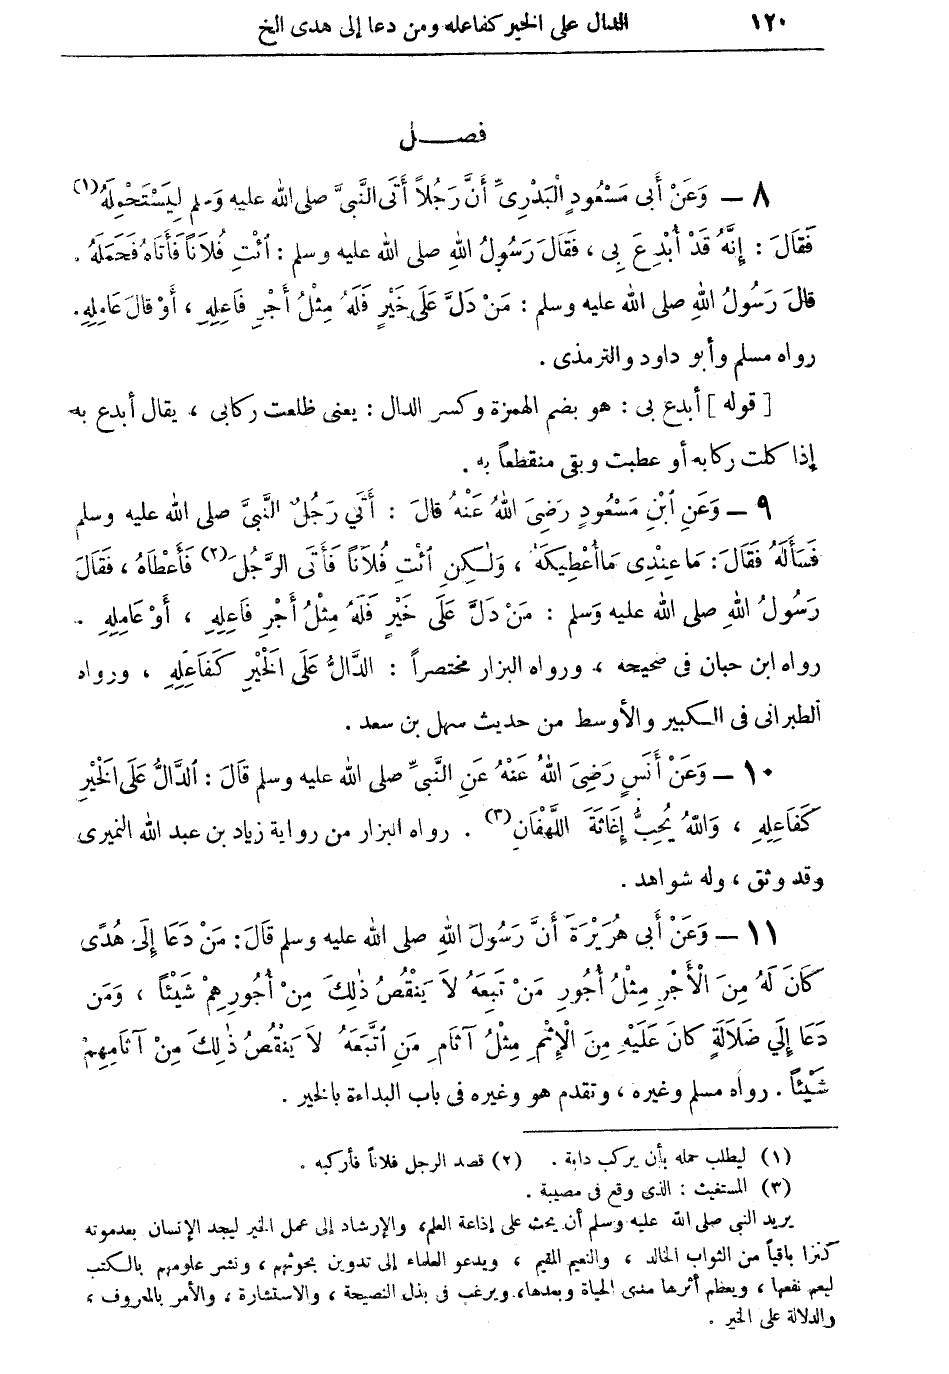 ١٢٠ الدال على الخير كفاعله ومن دعا إلى هدى الخ
فصـــل
٨ — وَعَنْ أَبى مَسْعُودٍ الْبَدْرِىِّ أَنَّ رَجُلاً أَتَى النَّبِىَّ صلى الله عليه وسلم لِيَسْتَحْمِلَهُ(١)
فَقَالَ : إِنَّهُ قَدْ أُبْدِعَ بِى ، فَقَالَ رَسُولُ اللهِ صلى الله عليه وسلم : ٱئْتِ فُلاَناً فَأَتَاهُ فَحَمَلَهُ .
قالَ رَسُولُ اللهِ صلى الله عليه وسلم : مَنْ دَلَّ عَلَى خَيْرٍ فَلَهُ مِثْلُ أَجْرِ فَاعِلِهِ ، أَوْ قالَ عَامِلِهِ .
رواه مسلم وأبو داود والترمذى .
[ قوله ] أبدع بى : هو بضم الهمزة وكسر الدال : يعنى ظلعت ركابى ، يقال أبدع به
إذا كلت ركابه أو عطبت وبقى منقطعاً به .
٩ — وَعَنِ ٱبْنِ مَسْعُودٍ رَضِىَ اللهُ عَنْهُ قالَ : أَتَي رَجُلٌ النَّبِىَّ صلى الله عليه وسلم
فَسَأَلَهُ فَقَالَ : مَا عِنْدِى مَا أُعْطِيكَهُ ، وَلٰكِنِ ٱئْتِ فُلاَناً فَأَتَى الرَّجُلَ(٢) فَأَعْطَاهُ ، فَقَالَ
رَسُولُ اللهِ صلى الله عليه وَسلم : مَنْ دَلَّ عَلَى خَيْرٍ فَلَهُ مِثْلُ أَجْرِ فَاعِلِهِ ، أَوْ عَامِلِهِ .
رواه ابن حبان فى صحيحه ، ورواه البزار مختصراً : الدَّالُّ عَلَى الْخَيْرِ كَفَاعِلِهِ ، ورواه
الطبرانى فى الكبير والأوسط من حديث سهل بن سعد .
١٠ — وَعَنْ أَنَسٍ رَضِىَ اللهُ عَنْهُ عَنِ النَّبِىِّ صلى الله عليه وسلم قَالَ : ٱلدَّالُّ عَلَى الْخَيْرِ
كَفَاعِلِهِ ، وَاللهُ يُحِبُّ إِغَاثَةَ اللَّهْفَانِ(٣) . رواه البزار من رواية زياد بن عبد الله النميرى
وقد وثق ، وله شواهد .
١١ — وَعَنْ أَبى هُرَيْرَةَ أَنَّ رَسُولَ اللهِ صلى الله عليه وسلم قَالَ : مَنْ دَعَا إِلَى هُدًى
كَانَ لَهُ مِنَ الْأَجْرِ مِثْلُ أُجُورِ مَنْ تَبِعَهُ لاَ يَنْقُصُ ذٰلِكَ مِنْ أُجُورِهِمْ شَيْئًا ، وَمَن
دَعَا إِلَي ضَلاَلَةٍ كانَ عَلَيْهِ مِنَ الْإِثْمِ مِثْلُ آثَامِ مَنِ ٱتَّبَعَهُ لاَ يَنْقُصُ ذٰلِكَ مِنْ آثَامِهِمْ
شَيْئاً . رواه مسلم وغيره ، وتقدم هو وغيره فى باب البداءة بالخير .
(١) ليطلب حمله بأن يركب دابة . (٢) قصد الرجل فلاناً فأركبه .
(٣) المستغيث : الذى وقع فى مصيبة .
يريد النبى صلى الله عليه وسلم أن يحث على إذاعة العلم، والإرشاد إلى عمل الخير ليجد الإنسان بعد موته
كنزا باقياً من الثواب الخالد ، والنعيم المقيم ، ويدعو العلماء إلى تدوين بحوثهم ، ونشر علومهم بالكتب
ليعم نفعها ، ويعظم أثرها مدى الحياة وبعدها، ويرغب فى بذل النصيحة ، والاستشارة ، والأمر بالمعروف ،
والدلالة على الخير .